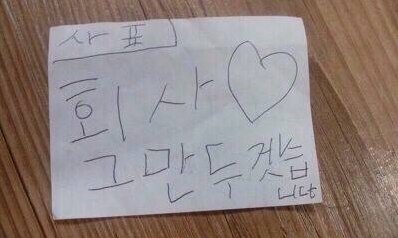 사표
회사 ♡
그만두겟습
니당